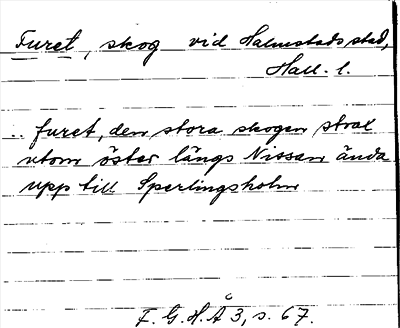 Furet, skog vid Halmstads stad,
Hall. l.
.. furet, den stora skogen strax
utom öster längs Nissan ända
upp till Sperlingsholm
F. G. H. Å 3, s. 67.